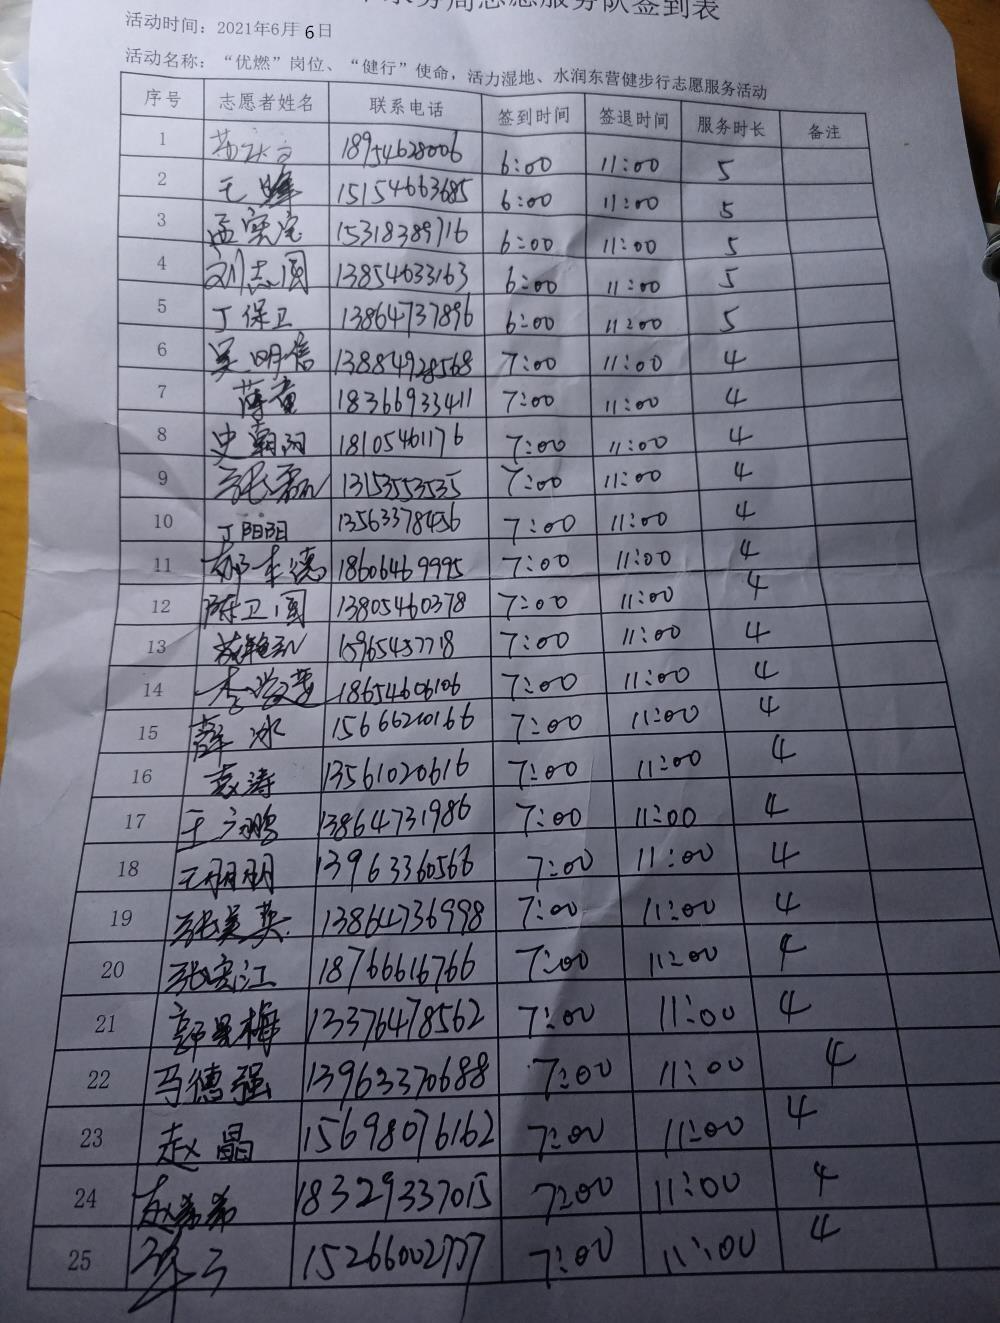 务局志愿服务队签到表
活动时间：2021年6月6日
活动名称：“优燃”岗位、“健行”使命，活力湿地、水润东营健步行志愿服务活动
序号 志愿者姓名 联系电话 签到时间 签退时间 服务时长 备注
1 18954628006 6:00 11:00 5
2 王峰 15154663685 6:00 11:00 5
3 孟宪宝 15318389716 6:00 11:00 5
4 刘志国 13854633163 6:00 11:00 5
5 丁保卫 13864737896 6:00 11:00 5
6 吴明信 13884928568 7:00 11:00 4
7 18366933411 7:00 11:00 4
8 史朝阳 18105461176 7:00 11:00 4
9 张磊 13153553535 7:00 11:00 4
10 丁阳阳 13563378456 7:00 11:00 4
11 18606469995 7:00 11:00 4
12 陈卫国 13805460378 7:00 11:00 4
13 15965457718 7:00 11:00 4
14 18654606106 7:00 11:00 4
15 薛冰 15666200166 7:00 11:00 4
16 袁涛 13561020616 7:00 11:00 4
17 王广鹏 13864731986 7:00 11:00 4
18 王丽丽 13963360566 7:00 11:00 4
19 张美英 13864736998 7:00 11:00 4
20 张宪江 18766616766 7:00 11:00 4
21 13376478562 7:00 11:00 4
22 马德强 13963370688 7:00 11:00 4
23 赵晶 15698076162 7:00 11:00 4
24 18329337015 7:00 11:00 4
25 15266002777 7:00 11:00 4